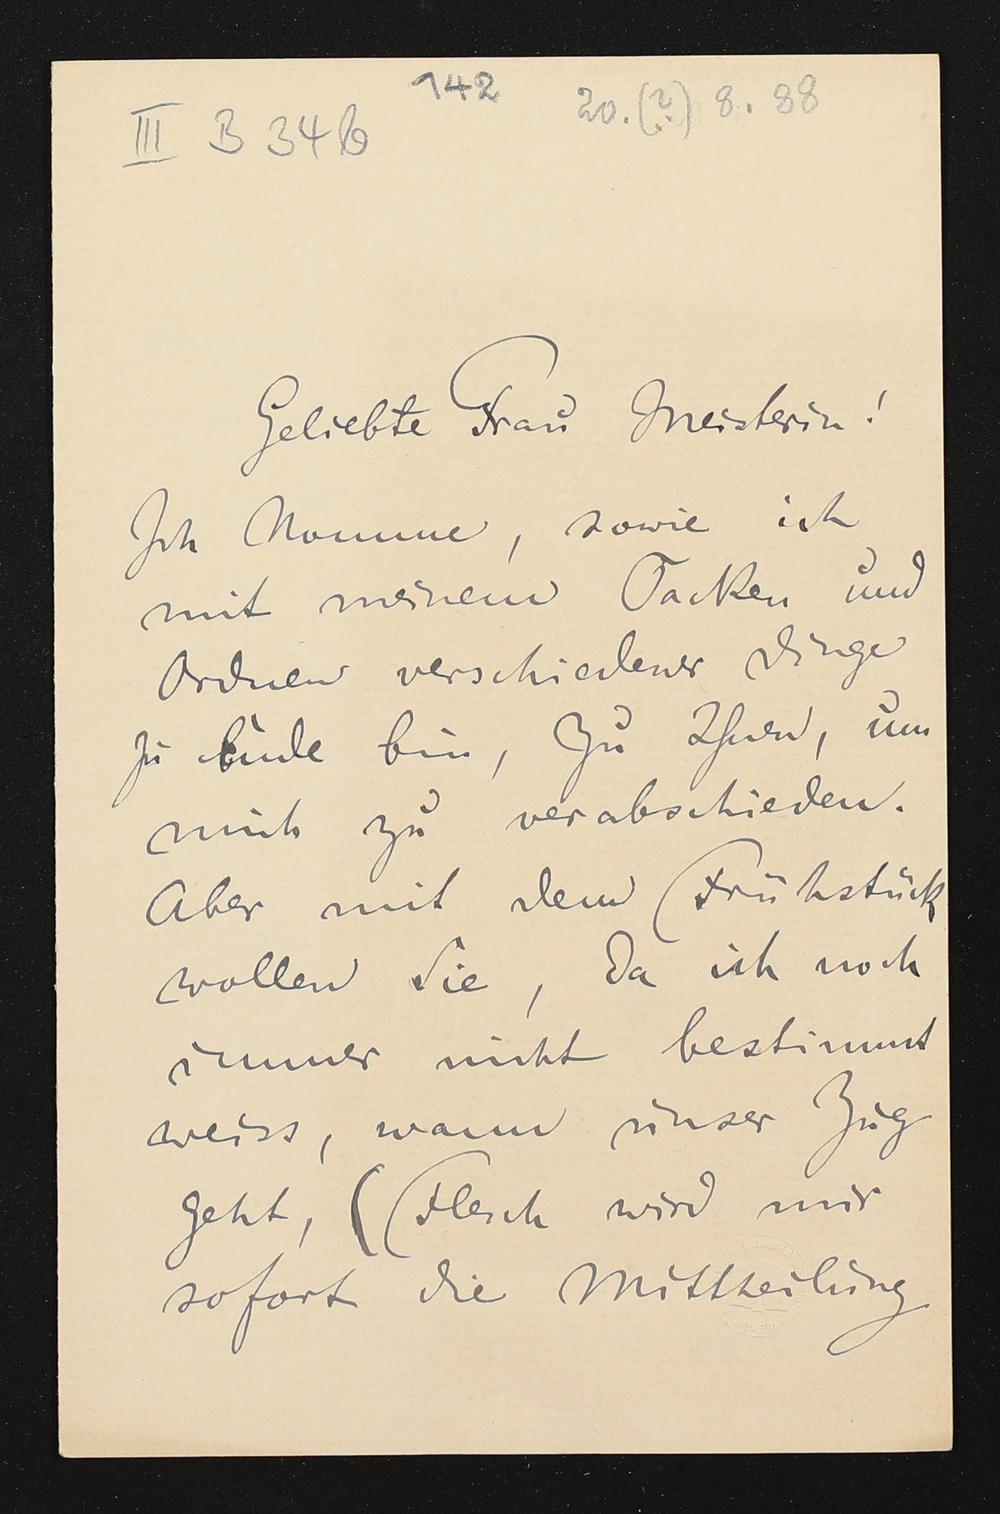 142
III B 34b
20.(?) 8. 88
Geliebte Frau Meisterin!
Ich komme, sowie ich
mit meinem Packen und
Ordnen verschiedener Dinge
zu Ende bin, zu Ihnen, um
mich zu verabschieden.
Aber mit dem Frühstück
wollen Sie, da ich noch
immer nicht bestimmt
weiss, wann unser Zug
geht, (Flesch wird mir
sofort die Mittheilung